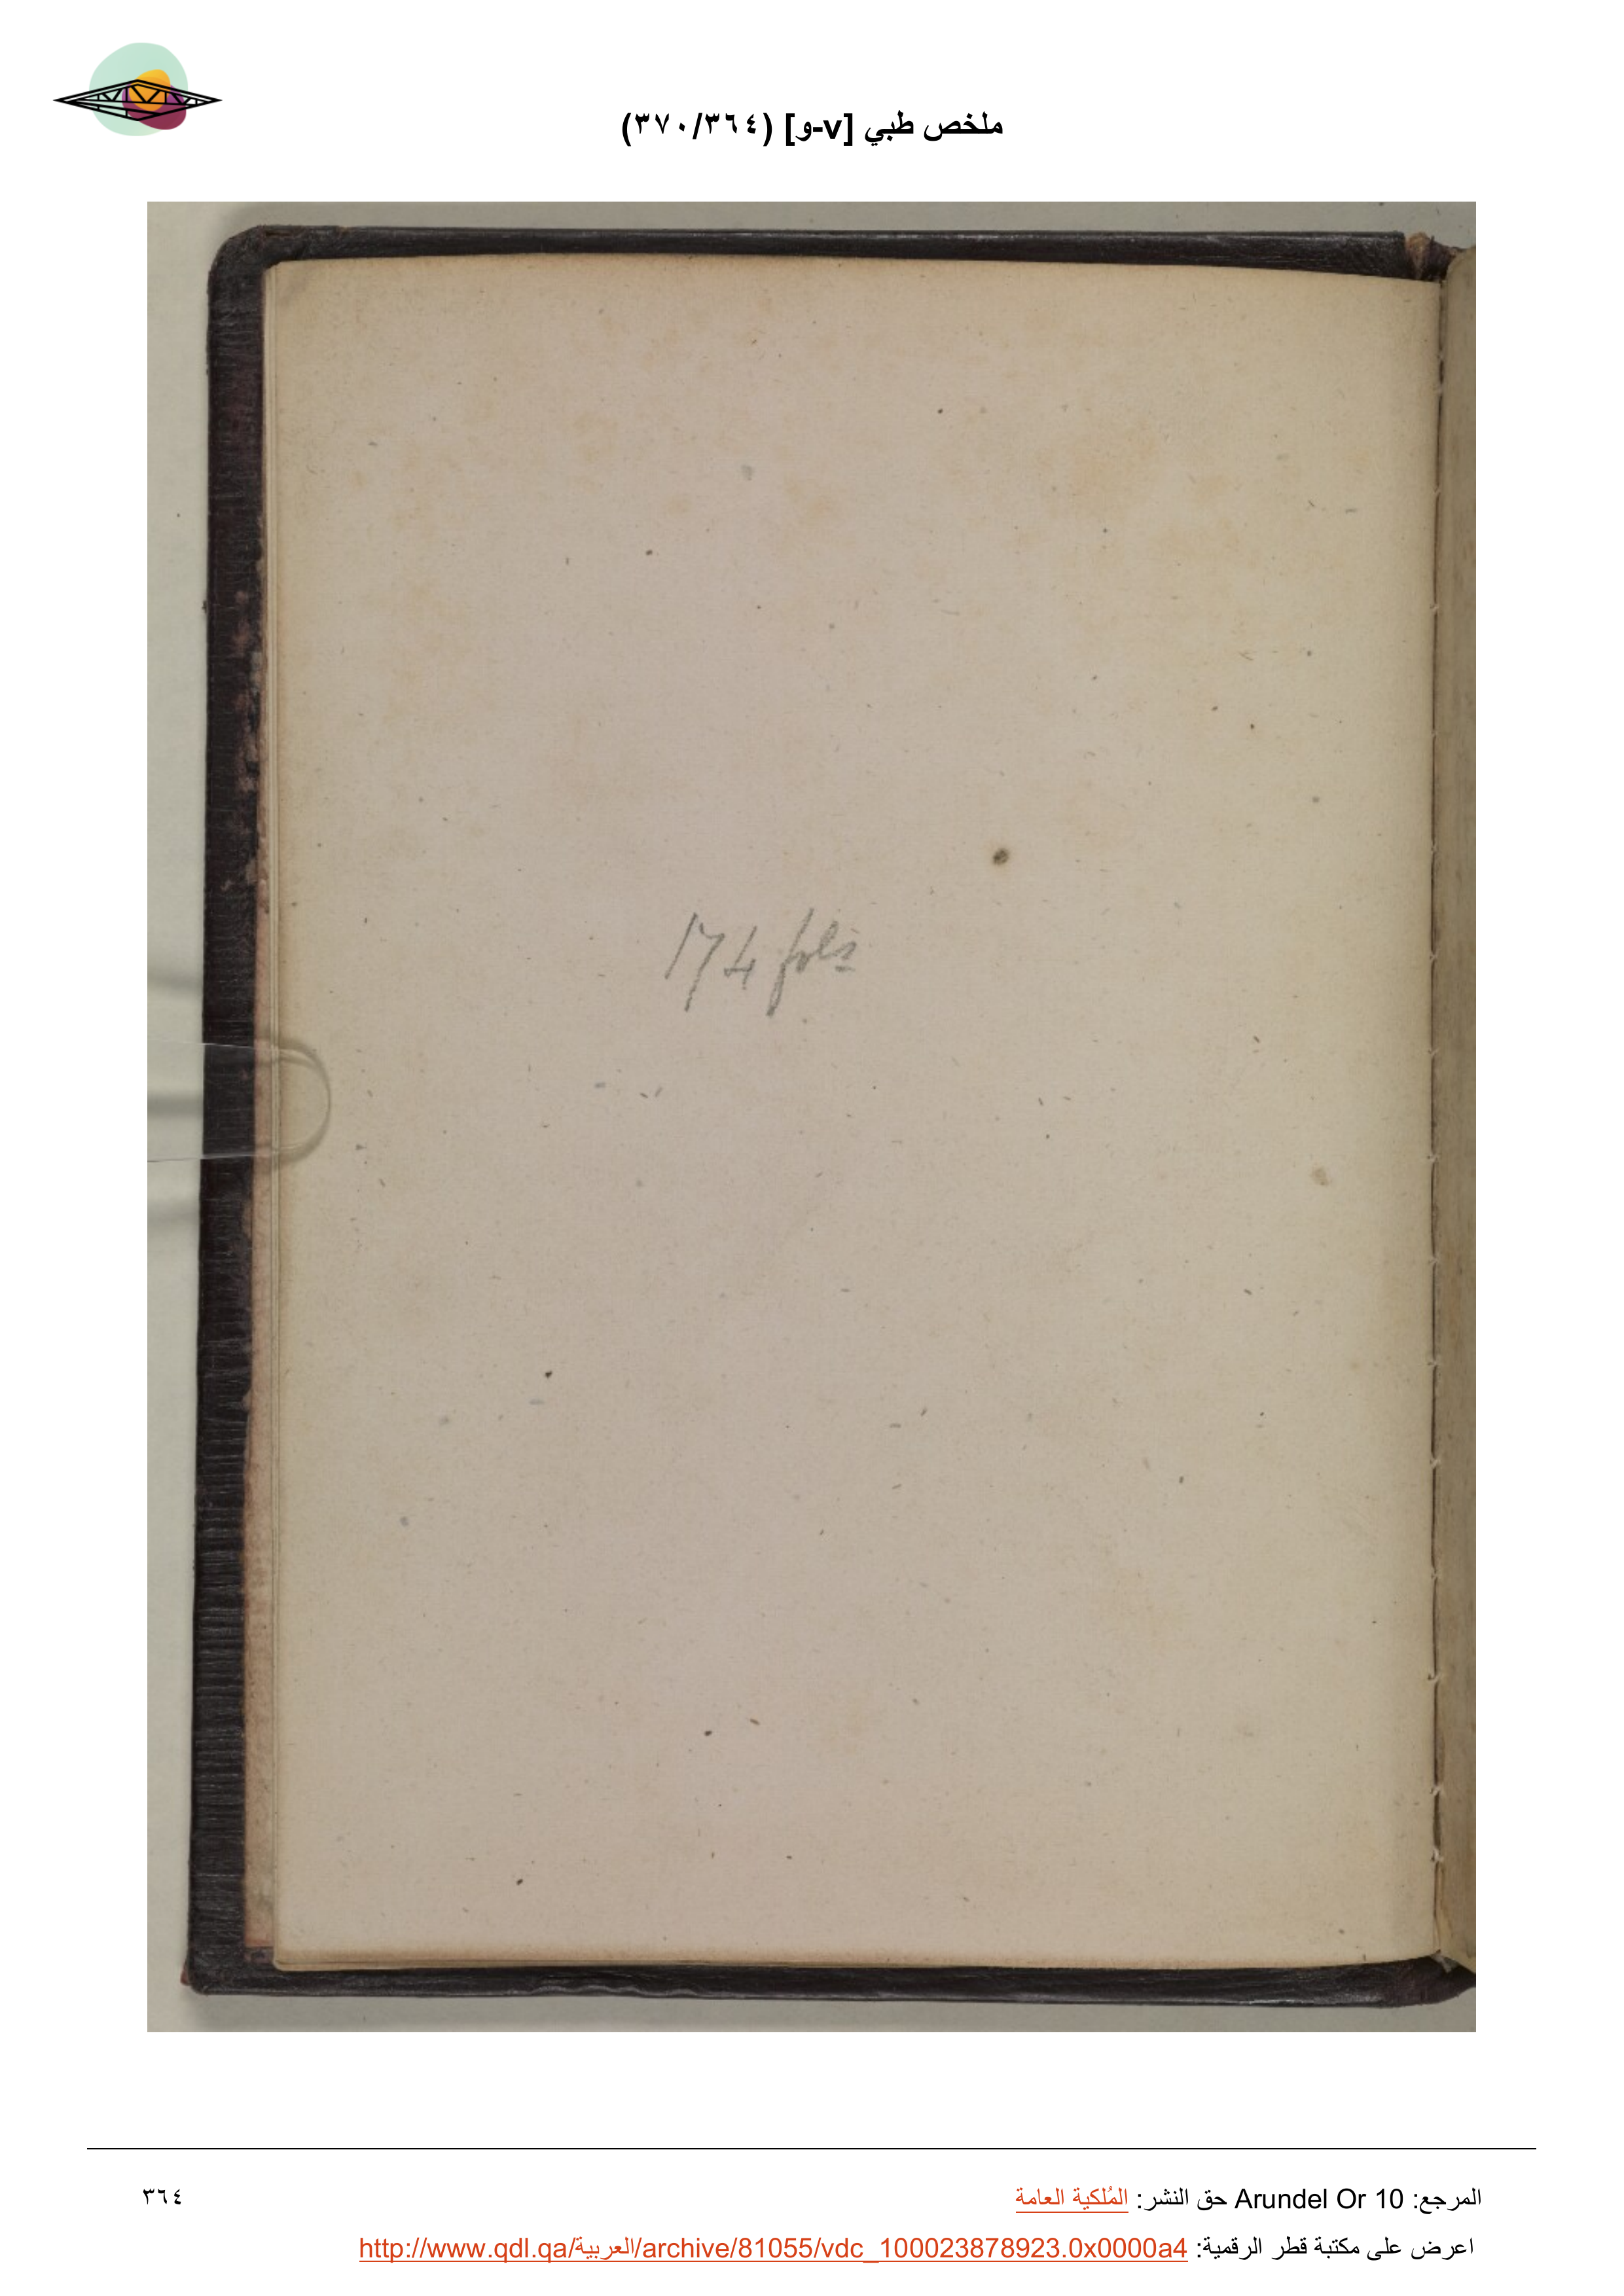 ملخص طبي [v-و] (٣٧٠/٣٦٤)
174 fols
المرجع: Arundel Or 10 حق النشر: المُلكية العامة
٣٦٤
اعرض على مكتبة قطر الرقمية: http://www.qdl.qa/العربية/archive/81055/vdc_100023878923.0x0000a4